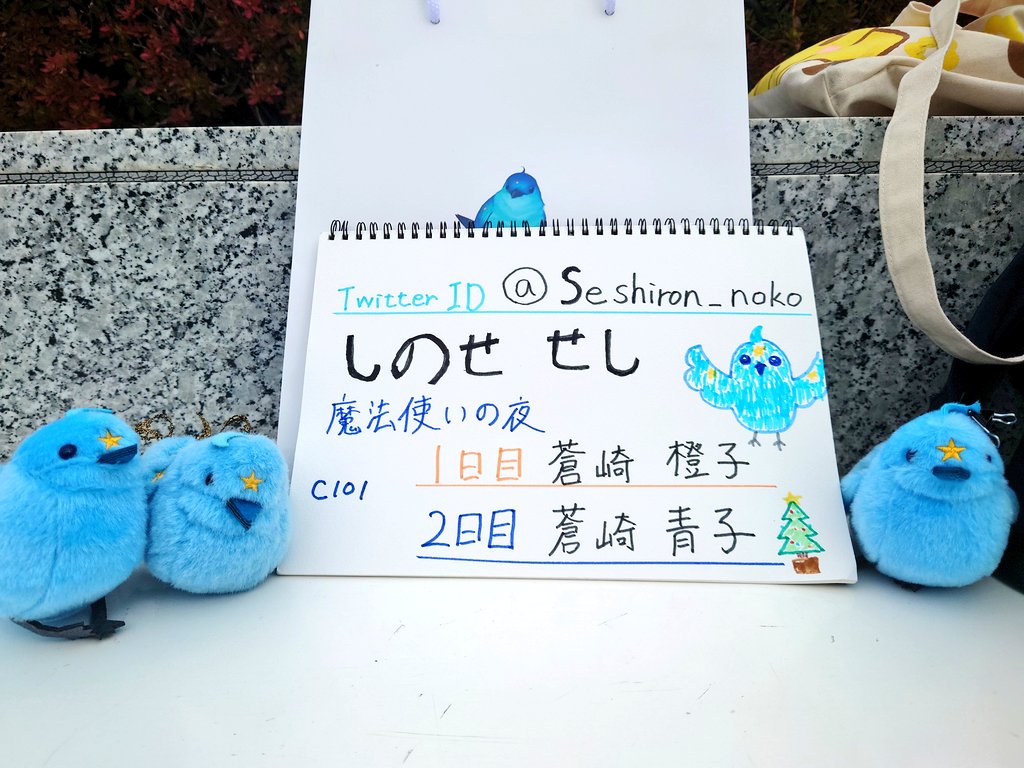 Twitter ID @Seshiron_noko
しのせ せし
魔法使いの夜
1日目 蒼崎 橙子
C101
2日目 蒼崎 青子